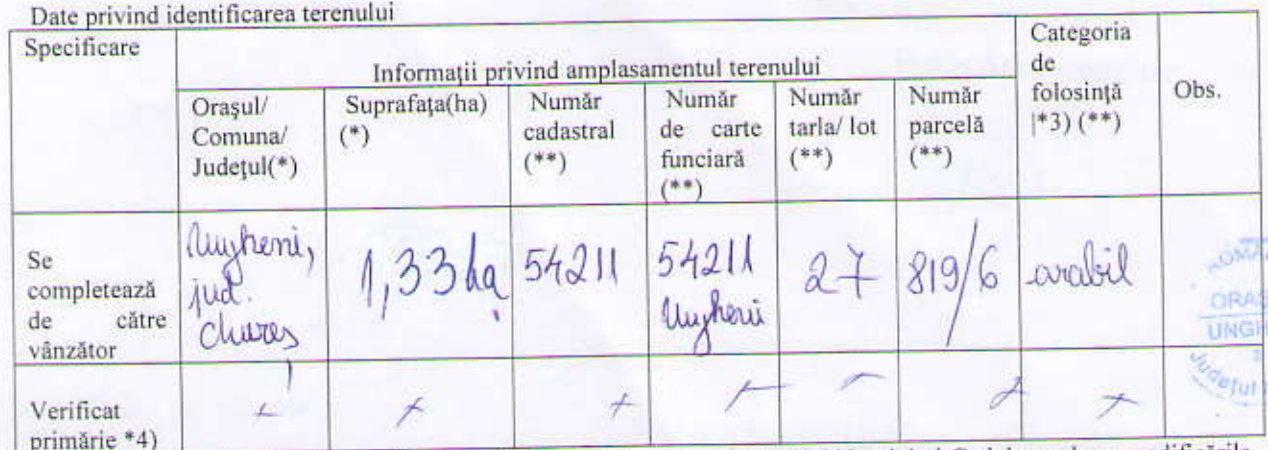 Date privind identificarea terenului
Specificare
Informații privind amplasamentul terenului
Categoria
de
folosință
|*3) (**)
Obs.
Orașul/
Comuna/
Județul(*)
Suprafața(ha)
(*)
Număr
cadastral
(**)
Număr
de carte
funciară
(**)
Număr
tarla/ lot
(**)
Număr
parcelă
(**)
Se
completează
de către
vânzător
Ungheni,
jud.
Mureș
1,33 ha
54211
54211
Ungheni
27
819/6
arabil
ORAȘ
UNGH
Județul
Verificat
primărie *4)
+
+
+
+
+
+
+
modificările